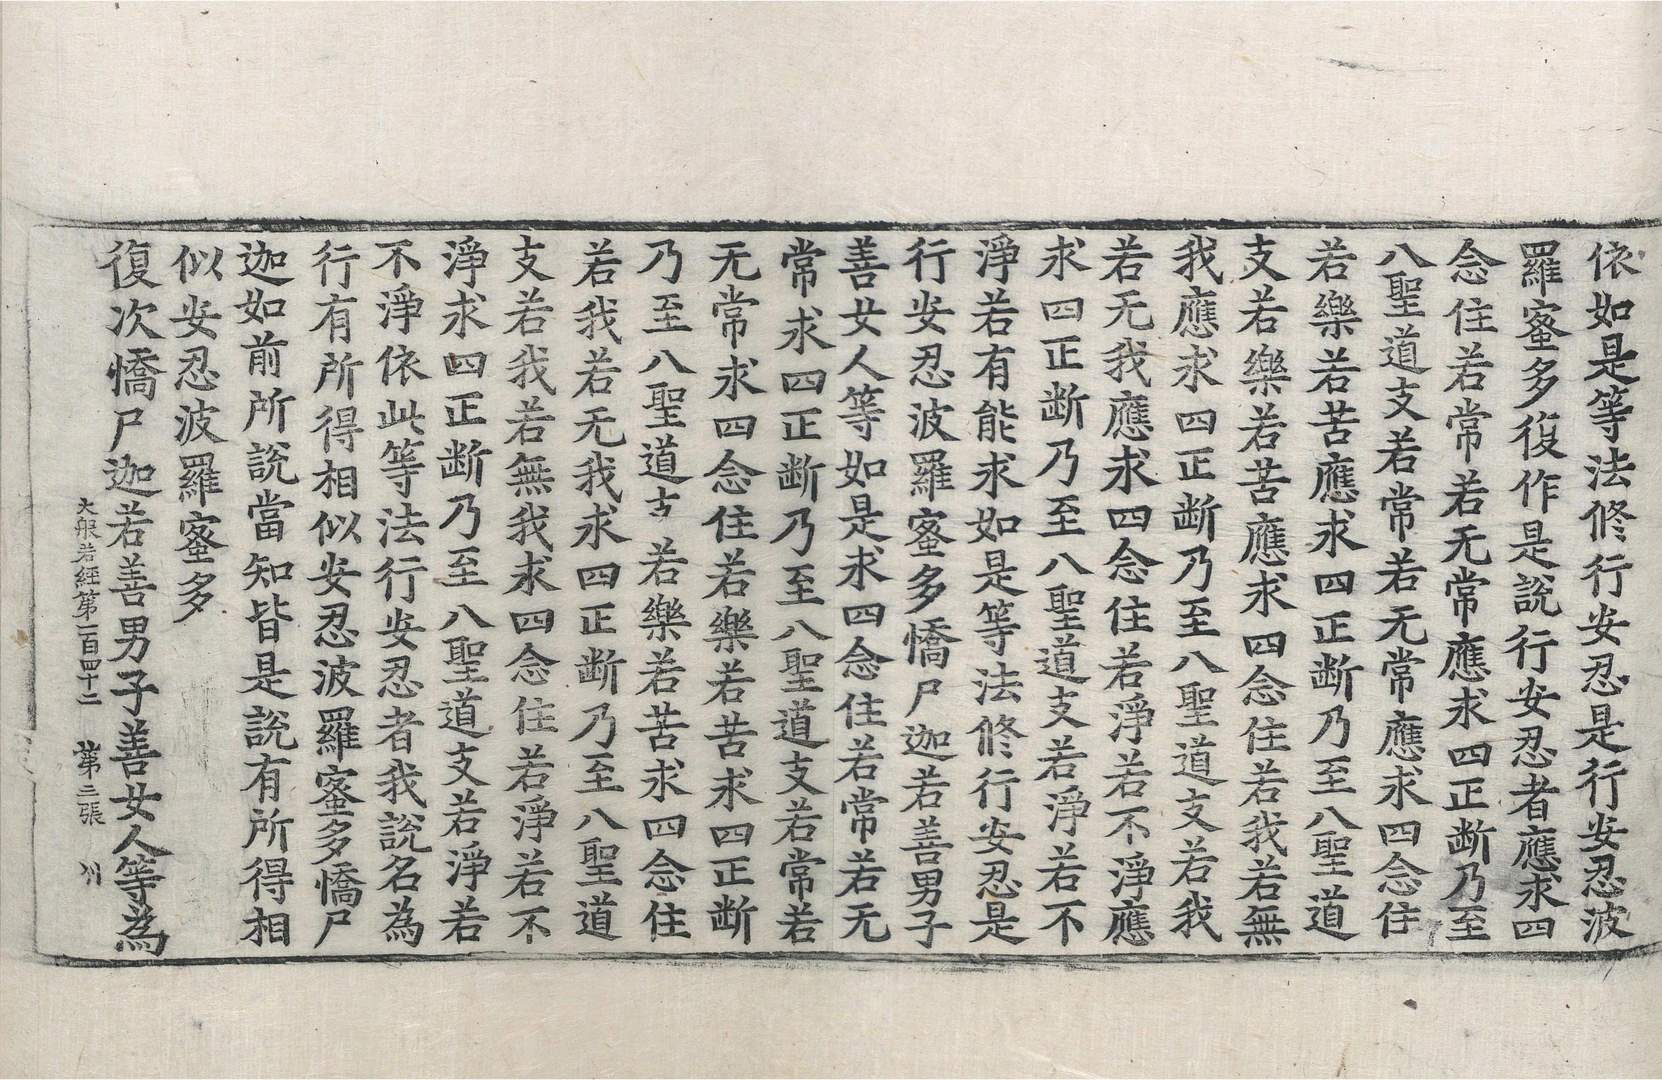 依如是等法修行安忍是行安忍波
羅蜜多復作是說行安忍者應求四
念住若常若无常應求四正断乃至
八聖道支若常若无常應求四念住
若樂若苦應求四正断乃至八聖道
支若樂若苦應求四念住若我若無
我應求四正断乃至八聖道支若我
若无我應求四念住若淨若不淨應
求四正断乃至八聖道支若淨若不
淨若有能求如是等法修行安忍是
行安忍波羅蜜多憍尸迦若善男子
善女人等如是求四念住若常若无
常求四正断乃至八聖道支若常若
无常求四念住若樂若苦求四正断
乃至八聖道支若樂若苦求四念住
若我若无我求四正断乃至八聖道
支若我若無我求四念住若淨若不
淨求四正断乃至八聖道支若淨若
不淨依此等法行安忍者我說名為
行有所得相似安忍波羅蜜多憍尸
迦如前所說當知皆是說有所得相
似安忍波羅蜜多
復次憍尸迦若善男子善女人等為
大般若經第一百四十二 第三張